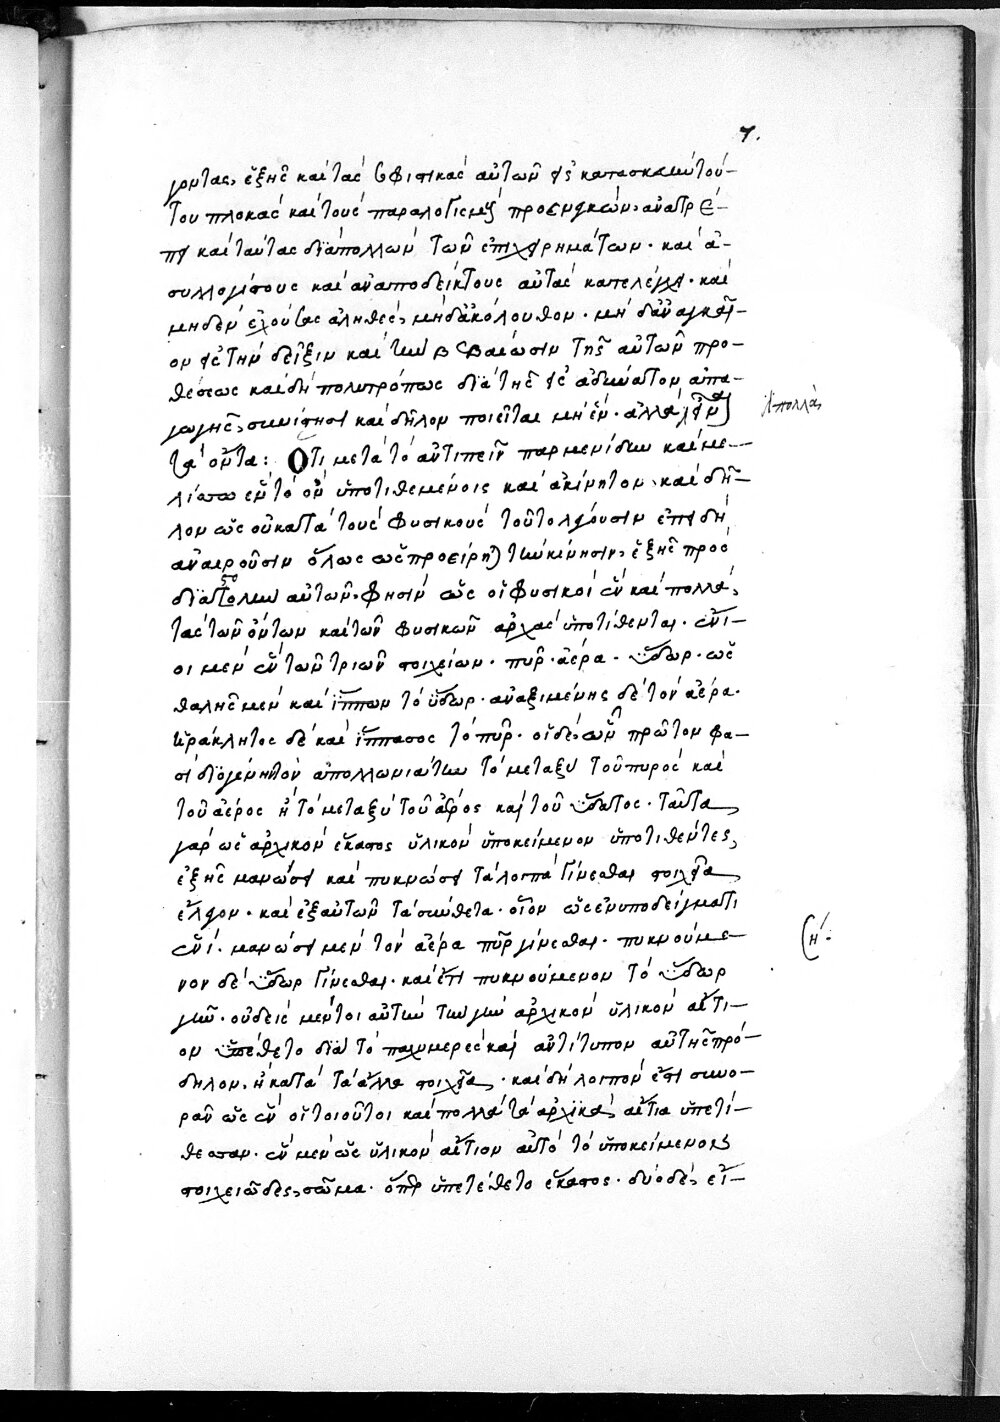 7.
γοντας, ἑξῆς καὶ τὰς σοφιστικὰς αὐτῶν εἰς κατασκευὴν τού-
του πλοκὰς καὶ τοὺς παραλογισμοὺς προσενεγκὼν, ἀνατρέ-
πει καὶ ταύτας διὰ πολλῶν τῶν ἐπιχειρημάτων· καὶ ἀ-
συλλογίστους καὶ ἀναποδείκτους αὐτὰς κατελέγχει· καὶ
μηδὲν ἐχούσας ἀληθὲς, μηδ' ἀκόλουθον· μὴ δ' ἀναγκαῖ-
ον εἰς τὴν δεῖξιν καὶ τὴν βεβαίωσιν τῆς αὐτῶν προ-
θέσεως καὶ δὴ πολυτρόπως διὰ τῆς εἰς ἀδύνατον ἀπα-
γωγῆς, συνίστησι καὶ δῆλον ποιεῖται μὴ ἓν· ἀλλὰ
πολλὰ
τὰ ὄντα: Ὅτι μετὰ τὸ ἀντιπεῖν παρμενίδην καὶ με-
λίσσω ἓν τὸ ὂν ὑποτιθεμένοις καὶ ἀκίνητον· καὶ δῆ-
λον ὡς οὐ κατὰ τοὺς φυσικοὺς τοῦτο λέγουσιν ἐπειδὴ
ἀναιροῦσιν ὅλως ὡς προείρηται τὴν κίνησιν, ἑξῆς πρὸς
διαστολὴν αὐτῶν· φησὶν ὡς οἱ φυσικοὶ ἓν καὶ πολλὰ,
τὰς τῶν ὄντων καὶ τῶν φυσικῶν ἀρχὰς ὑποτίθενται· ἔνι-
οι μὲν ἓν τῶν τριῶν στοιχείων· πῦρ· ἀέρα· ὕδωρ· ὡς
θαλῆς μὲν καὶ ἵππων τὸ ὕδωρ· ἀναξιμένης δὲ τὸν ἀέρα·
ἡράκλητος δὲ καὶ ἵππασος τὸ πῦρ· οἱ δὲ, ὧν πρῶτον φα-
σὶ διογένη τὸν ἀπολλωνιάτην τὸ μεταξὺ τοῦ πυρὸς καὶ
τοῦ ἀέρος ἢ τὸ μεταξὺ τοῦ ἀέρος καὶ τοῦ ὕδατος· ταῦτα
γὰρ ὡς ἀρχικὸν ἕκαστος ὑλικὸν ὑποκείμενον ὑποτιθέντες,
ἑξῆς μανώσει καὶ πυκνώσει τὰ λοιπὰ γίνεσθαι στοιχεῖα
ἔλεγον· καὶ ἐξ αὐτῶν τὰ σύνθετα· οἷον ὡς ἐν ὑποδείγματι
ἑνί· μανώσει μὲν τὸν ἀέρα πῦρ γίνεσθαι· πυκνούμε-
νον δὲ ὕδωρ γίνεσθαι· καὶ ἔτι πυκνούμενον τὸ ὕδωρ
γῆν· οὐδεὶς μέντοι αὐτῶν τὴν γῆν ἀρχικὸν ὑλικὸν αἴτι-
ον ὑπέθετο διὰ τὸ παχυμερὲς καὶ ἀντίτυπον αὐτῆς πρό-
δηλον, ἢ κατὰ τὰ ἄλλα στοιχεῖα· καὶ δὴ λοιπὸν ἔστι συνο-
ρᾶν ὡς ἓν οἱ τοιοῦτοι καὶ πολλὰ τὰ ἀρχικὰ αἴτια ὑπετί-
θεσαν· ἓν μὲν ὡς ὑλικὸν αἴτιον αὐτὸ τὸ ὑποκείμενον
στοιχειῶδες, σῶμα· ὅπερ ὑπετέθετο ἕκαστος· δύο δὲ, εἴ-